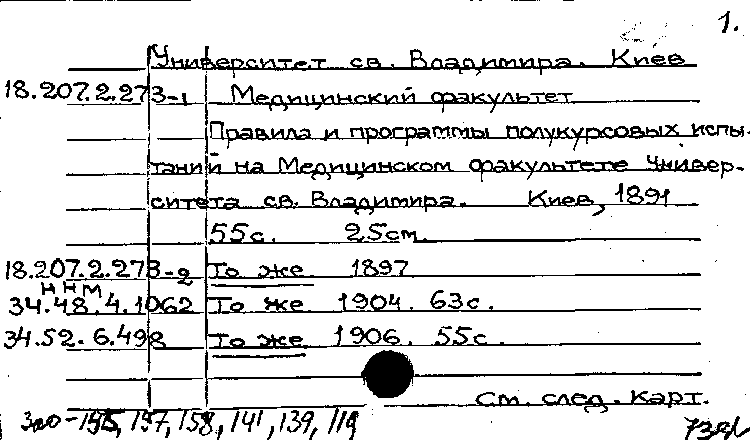 1.
Университет св. Владимира. Киев
18.207.2.273-1 Медицинский факультет
Правила и программы полукурсовых испы-
таний на Медицинском факультете Универ-
ситета св. Владимира. Киев, 1891
55с. 25см.
18.207.2.273-2 То же 1897
ННМ
34.48.4.1062 То же 1904. 63с.
34.52.6.498 То же 1906. 55с.
См. след. карт.
137, 158, 141, 139, 119